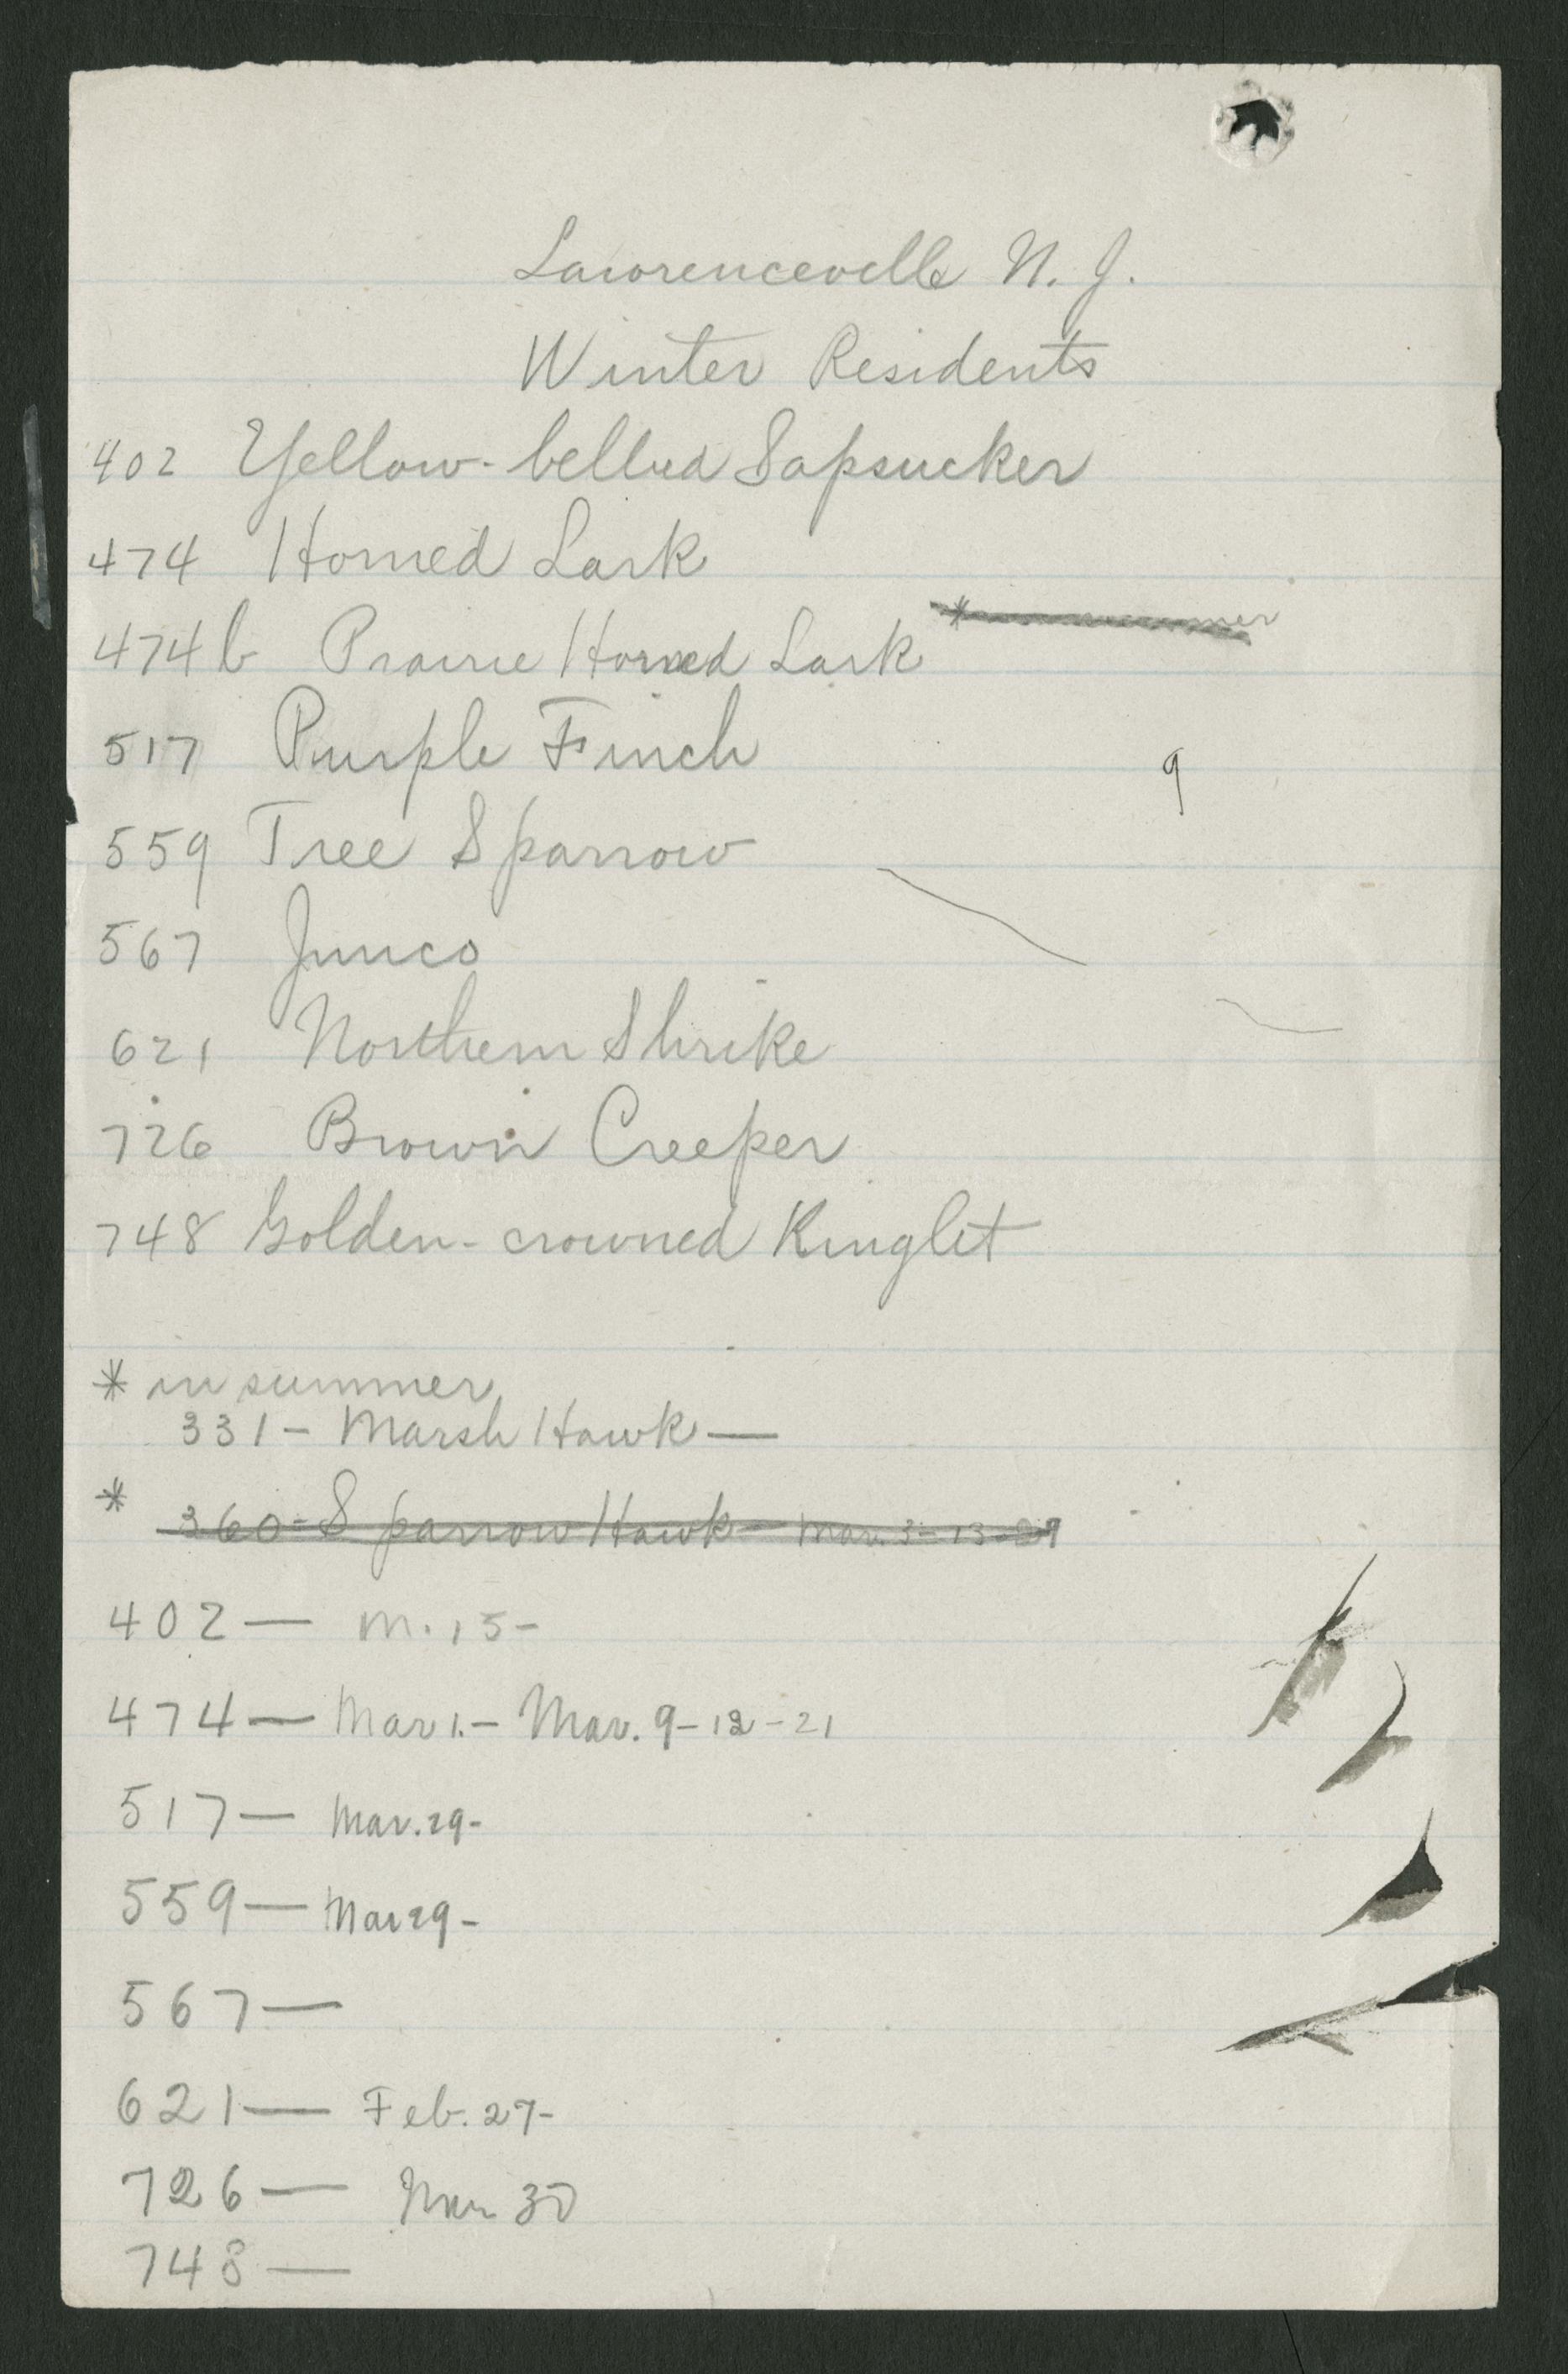 Lawrenceville N. J.
Winter Residents
402 Yellow-bellied Sapsucker
474 Horned Lark
474b Prairie Horned Lark * in summer
517 Purple Finch
9
559 Tree Sparrow
567 Junco
621 Northern Shrike
726 Brown Creeper
748 Golden-crowned Kinglet
* in summer
331- Marsh Hawk —
* 360-Sparrow Hawk- Mar. 3-13-29
402 — M. 15-
474 — Mar 1.- Mar. 9-12-21
517 — Mar. 29-
559 — Mar 29-
567 —
621 — Feb. 27-
726 — Mar 30
748 —